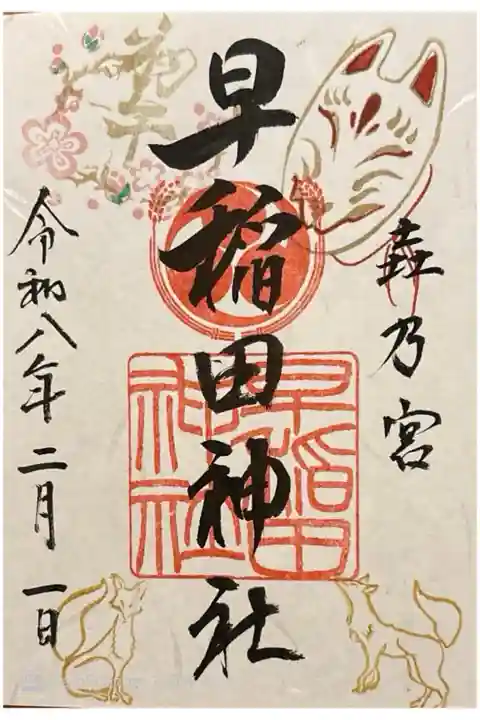 犇乃宮
早稲田神社
早稲田
神社
初午
令和八年二月一日